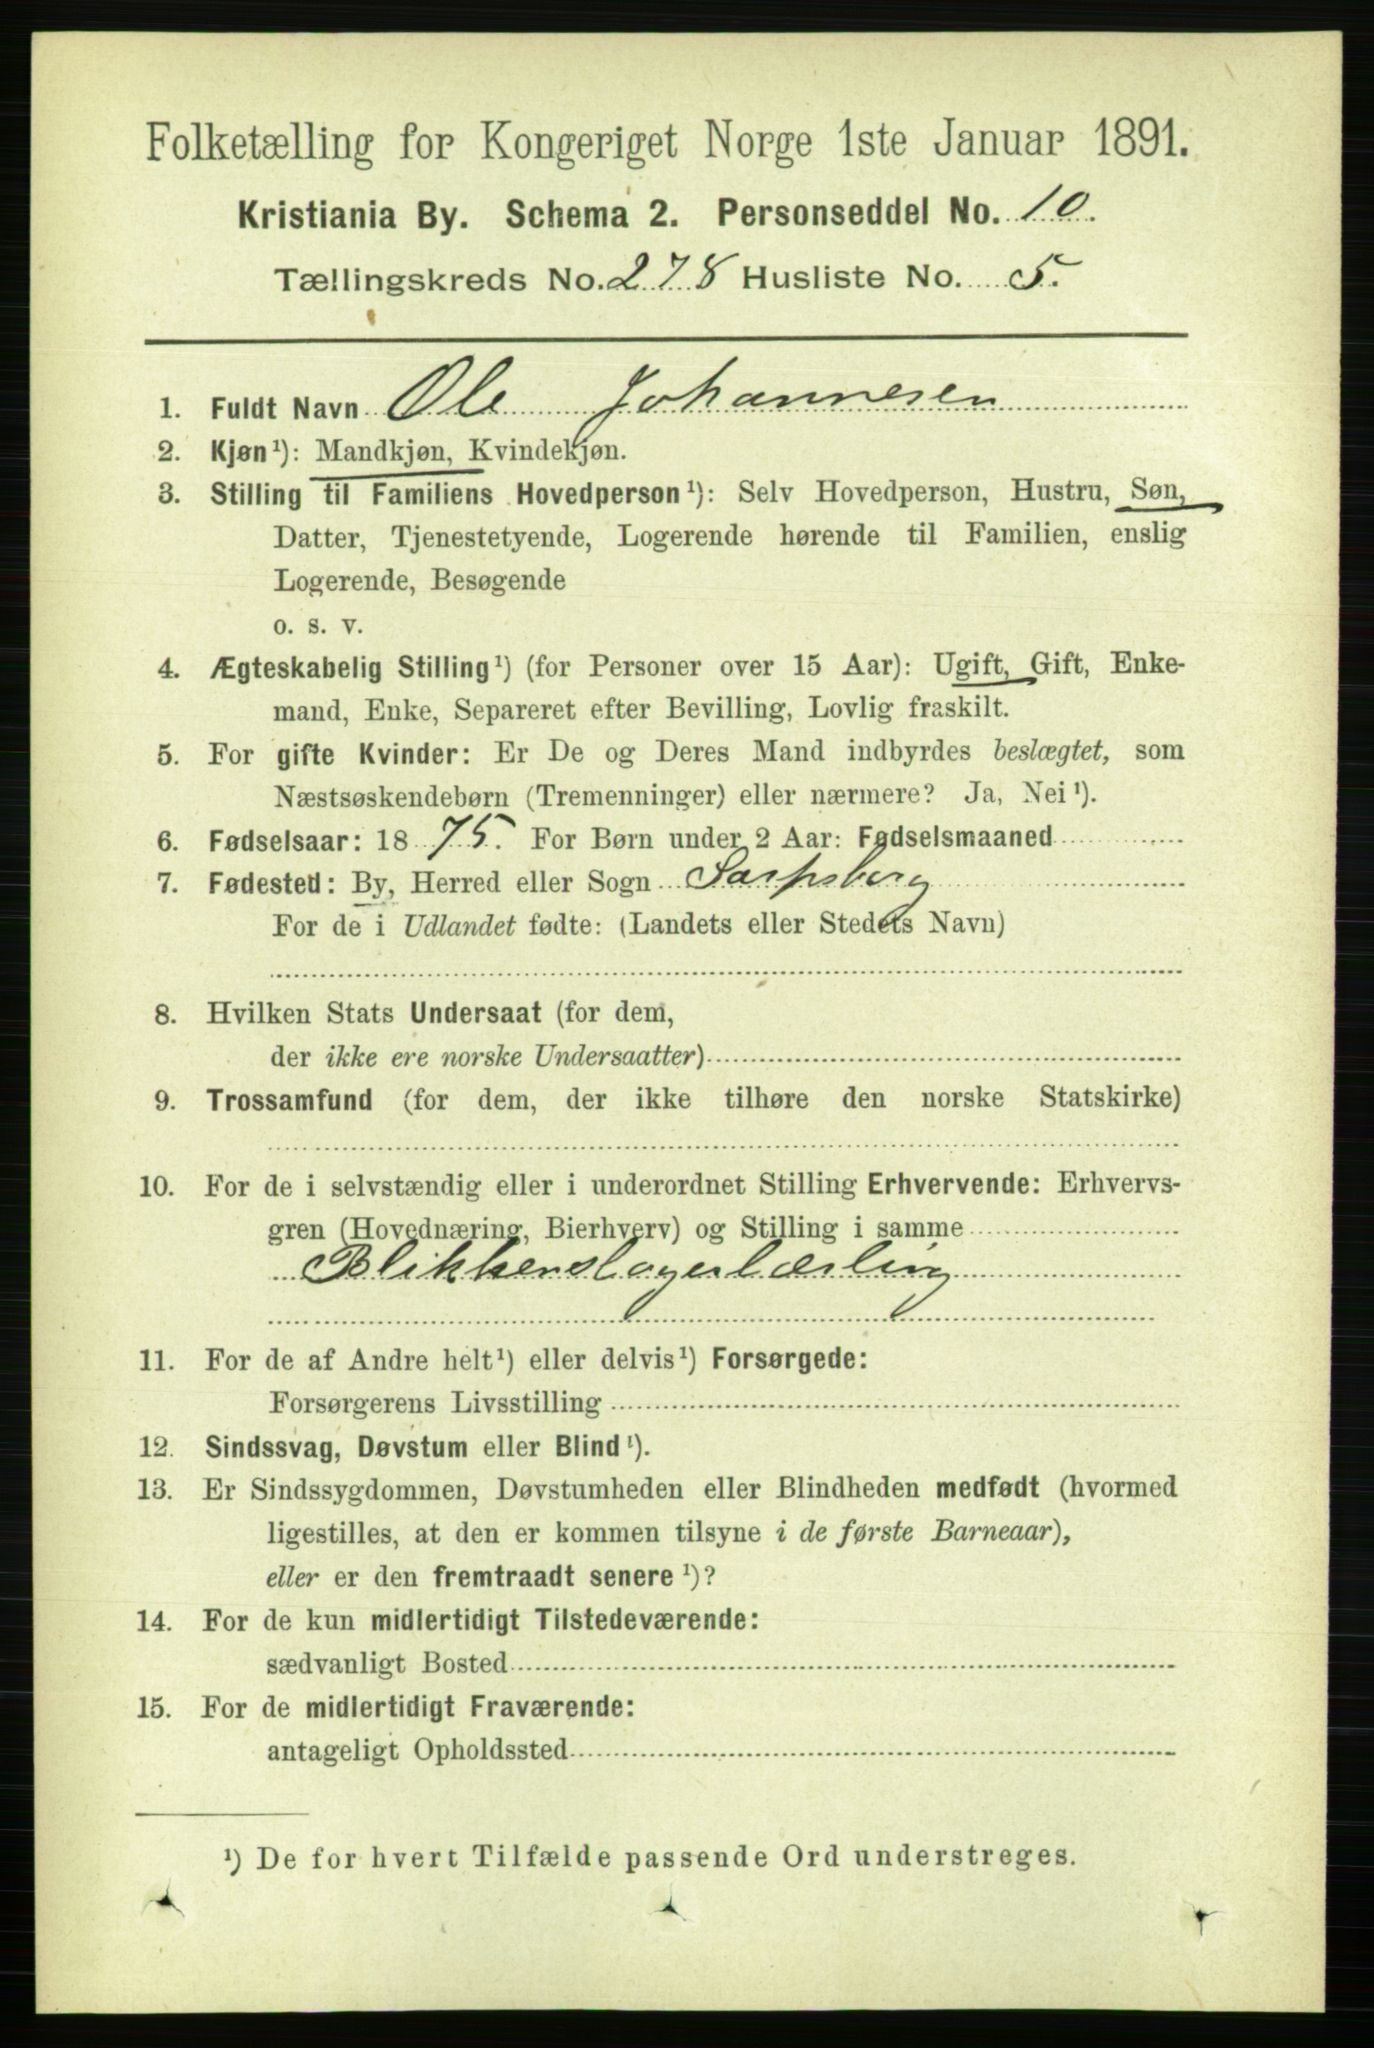 Folketælling for Kongeriget Norge 1ste Januar 1891.
Kristiania By. Schema 2. Personseddel No. 10.
Tællingskreds No. 278 Husliste No. 5.
1. Fuldt Navn Ole Johannesen
2. Kjøn¹): Mandkjøn, Kvindekjøn.
3. Stilling til Familiens Hovedperson¹): Selv Hovedperson, Hustru, Søn,
Datter, Tjenestetyende, Logerende hørende til Familien, enslig
Logerende, Besøgende
o. s. v.
4. Ægteskabelig Stilling¹) (for Personer over 15 Aar): Ugift, Gift, Enke-
mand, Enke, Separeret efter Bevilling, Lovlig fraskilt.
5. For gifte Kvinder: Er De og Deres Mand indbyrdes beslægtet, som
Næstsøskendebørn (Tremenninger) eller nærmere? Ja, Nei¹).
6. Fødselsaar: 1875. For Børn under 2 Aar: Fødselsmaaned
7. Fødested: By, Herred eller Sogn Sarpsborg
For de i Udlandet fødte: (Landets eller Stedets Navn)
8. Hvilken Stats Undersaat (for dem,
der ikke ere norske Undersaatter)
9. Trossamfund (for dem, der ikke tilhøre den norske Statskirke)
10. For de i selvstændig eller i underordnet Stilling Erhvervende: Erhvervs-
gren (Hovednæring, Bierhverv) og Stilling i samme
Blikkenslagerlærling
11. For de af Andre helt¹) eller delvis¹) Forsørgede:
Forsørgerens Livsstilling
12. Sindssvag, Døvstum eller Blind¹).
13. Er Sindssygdommen, Døvstumheden eller Blindheden medfødt (hvormed
ligestilles, at den er kommen tilsyne i de første Barneaar),
eller er den fremtraadt senere¹)?
14. For de kun midlertidigt Tilstedeværende:
sædvanligt Bosted
15. For de midlertidigt Fraværende:
antageligt Opholdssted
¹) De for hvert Tilfælde passende Ord understreges.